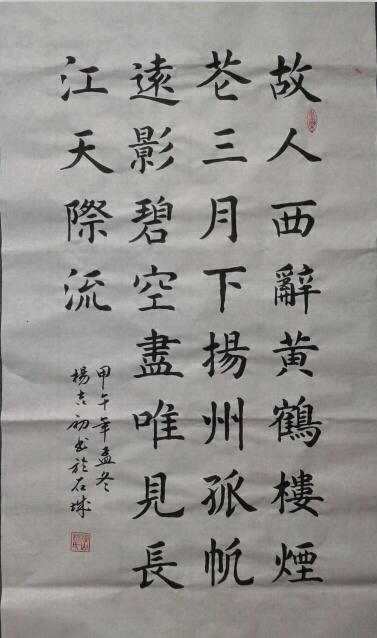 故人西辭黄鶴樓煙
花三月下揚州孤帆
遠影碧空盡唯見長
江天際流
甲午年孟冬
楊吉初书於石城